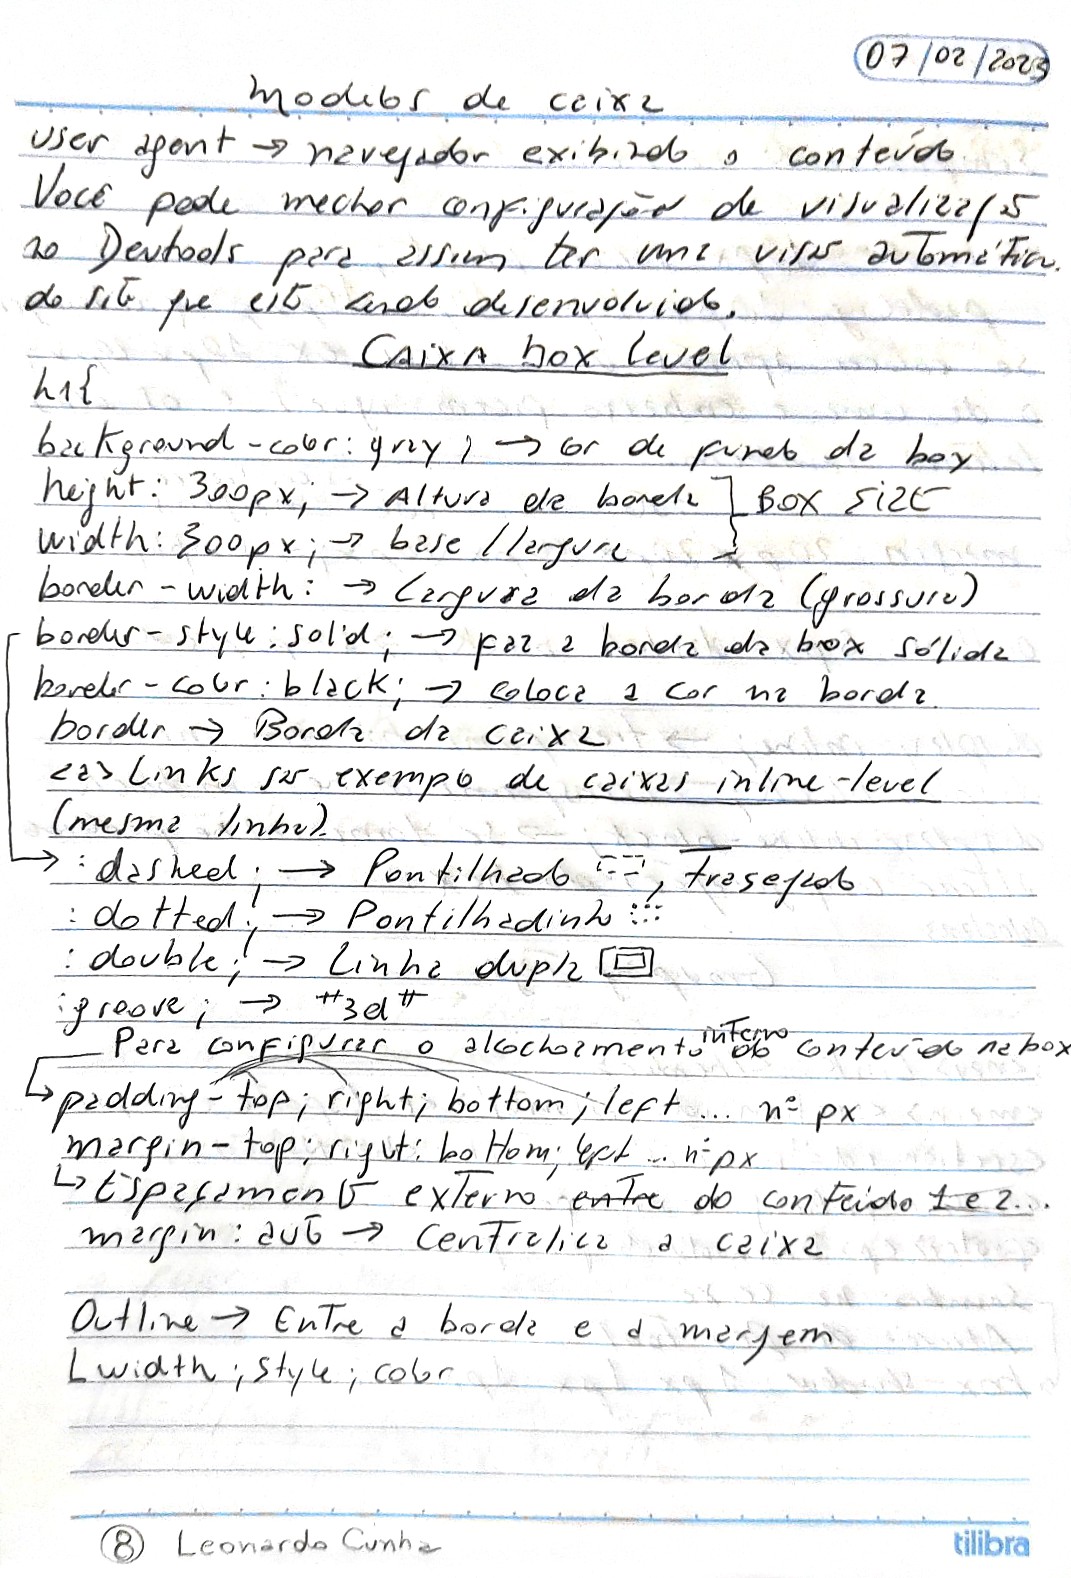 07/02/2023
Modelos de caixa
User agent → navegador exibindo o conteúdo.
Você pode mecher configuração de visualização
no Devtools para assim ter uma visão automática
do site que está sendo desenvolvido.
CAIXA box level
h1{
background-color: gray; → cor de fundo da box
height: 300px; → Altura da borda ] BOX SIZE
width: 300px; → base / largura
border-width: → Largura da borda (grossura)
border-style: solid; → faz a borda da box sólida
border-color: black; → coloca a cor na borda.
border → Borda da caixa
<a> Links são exemplo de caixas inline-level
(mesma linha).
: dashed; → Pontilhado, Trasejado
: dotted; → Pontilhadinho
: double; → Linha dupla
: groove; → "3d"
Para configurar o alcochoamento interno do conteúdo na box
padding-top; right; bottom; left ... nº px
margin-top; right: bottom; left ... nº px
↳ Espaçamento externo entre do conteúdo 1 e 2...
margin: auto → Centraliza a caixa
Outline → Entre a borda e a margem
L width; style; color
8 Leonardo Cunha
tilibra